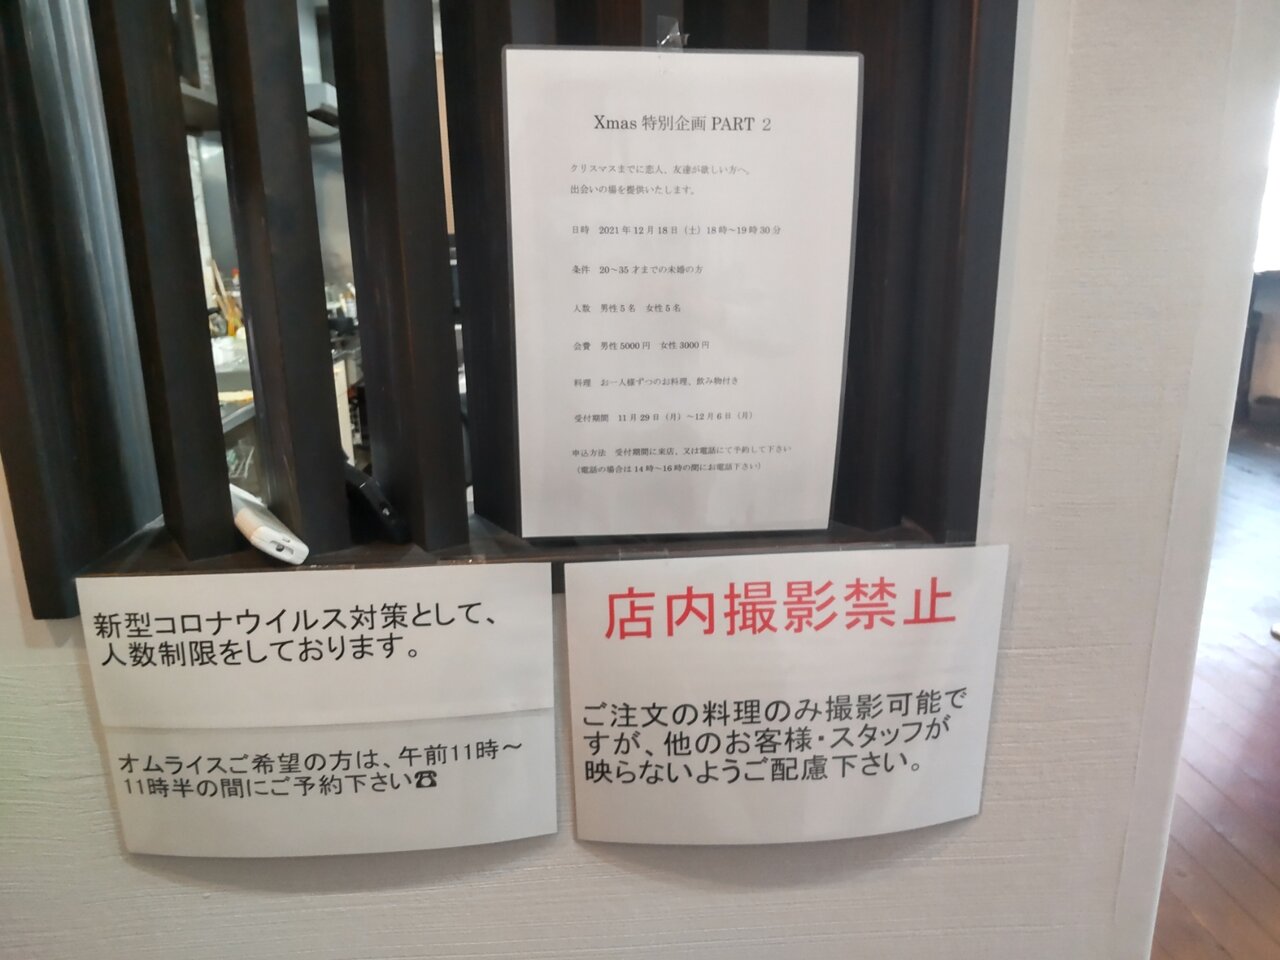 Xmas 特別企画 PART 2
クリスマスまでに恋人、友達が欲しい方へ。
出会いの場を提供いたします。
日時 2021年12月18日（土）18時～19時30分
条件 20～35才までの未婚の方
人数 男性5名 女性5名
会費 男性5000円 女性3000円
料理 お一人様ずつのお料理、飲み物付き
受付期間 11月29日（月）～12月6日（月）
申込方法 受付期間に来店、又は電話にて予約して下さい
（電話の場合は14時～16時の間にお電話下さい）
新型コロナウイルス対策として、
人数制限をしております。
オムライスご希望の方は、午前11時～
11時半の間にご予約下さい☎
店内撮影禁止
ご注文の料理のみ撮影可能で
すが、他のお客様・スタッフが
映らないようご配慮下さい。